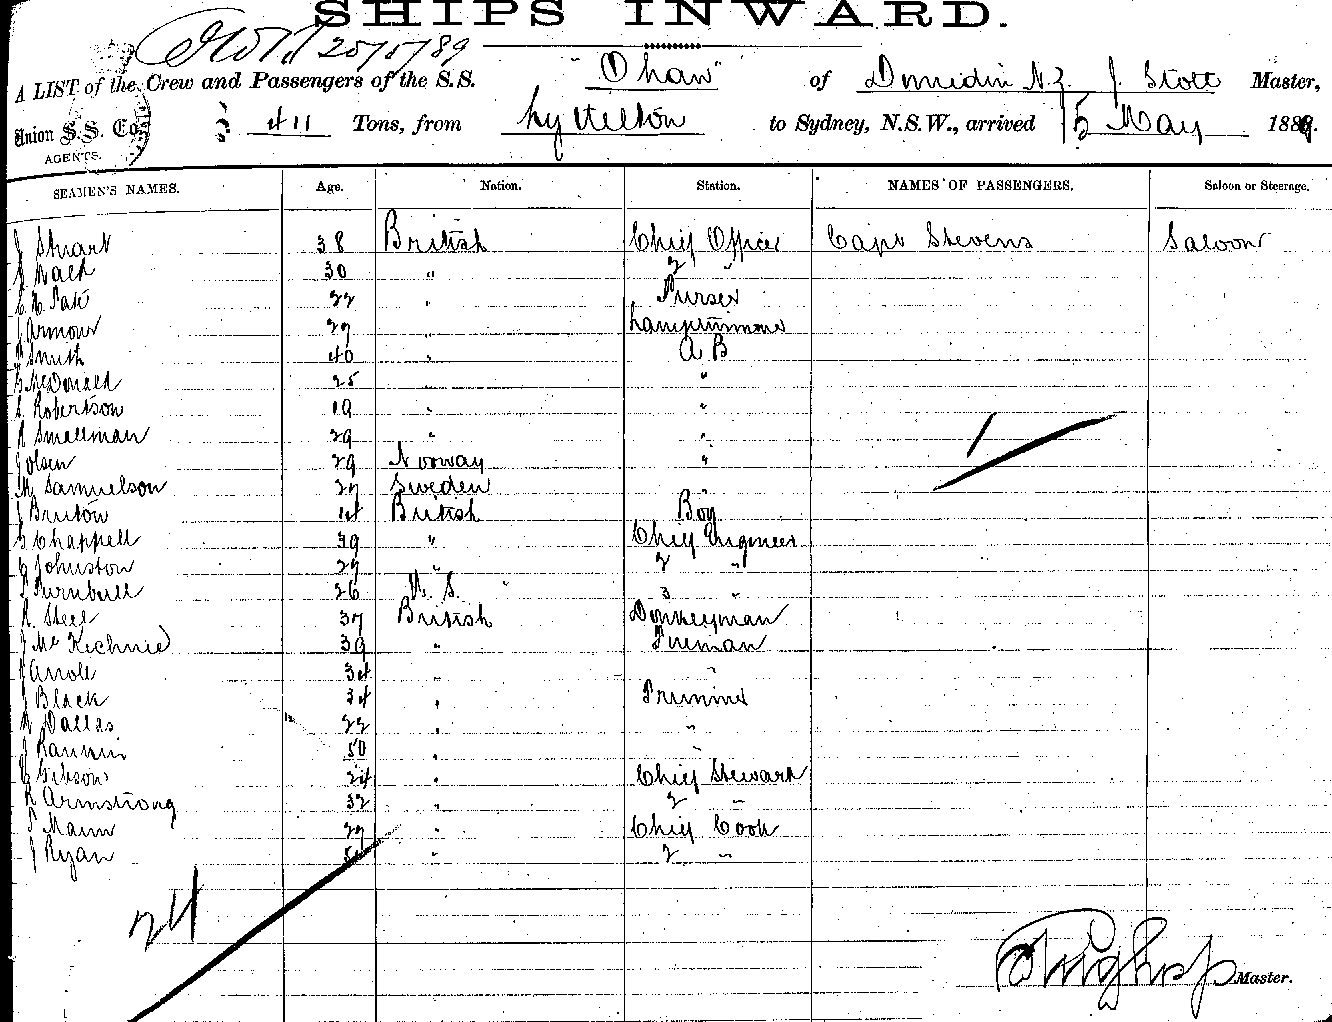 SHIPS INWARD.
20/5/89
A LIST of the Crew and Passengers of the S.S. "Ohau" of Dunedin N.Z. J. Stott Master,
Union S.S. Co.
AGENTS.
411 Tons, from Lyttelton to Sydney, N.S.W., arrived 15 May 1889.
SEAMEN'S NAMES. Age. Nation. Station. NAMES OF PASSENGERS. Saloon or Steerage.
J Stuart 38 British Chief Officer Capt Stevens Saloon
30 " 2 "
22 " Purser
J Armour 29 " Lamptrimmer
Smith 40 " A B
McDonald 25 "
Robertson 19 " "
Smallman 29 " "
J Olsen 29 Norway "
Samuelson 27 Sweden
J Bruton 14 British Boy
Chappell 39 " Chief Engineer
Johnston 27 " 2 "
Turnbull 26 U. S. " 3 "
R Steel 37 British Donkeyman
J McKechnie 39 " Fireman
34 " "
J Black 34 " Trimmer
Dallas 22 " "
J 50 " "
Gibson 24 " Chief Steward
R Armstrong 32 " 2 "
Mann 27 " Chief Cook
J Ryan " 2 "
24
1
Master.